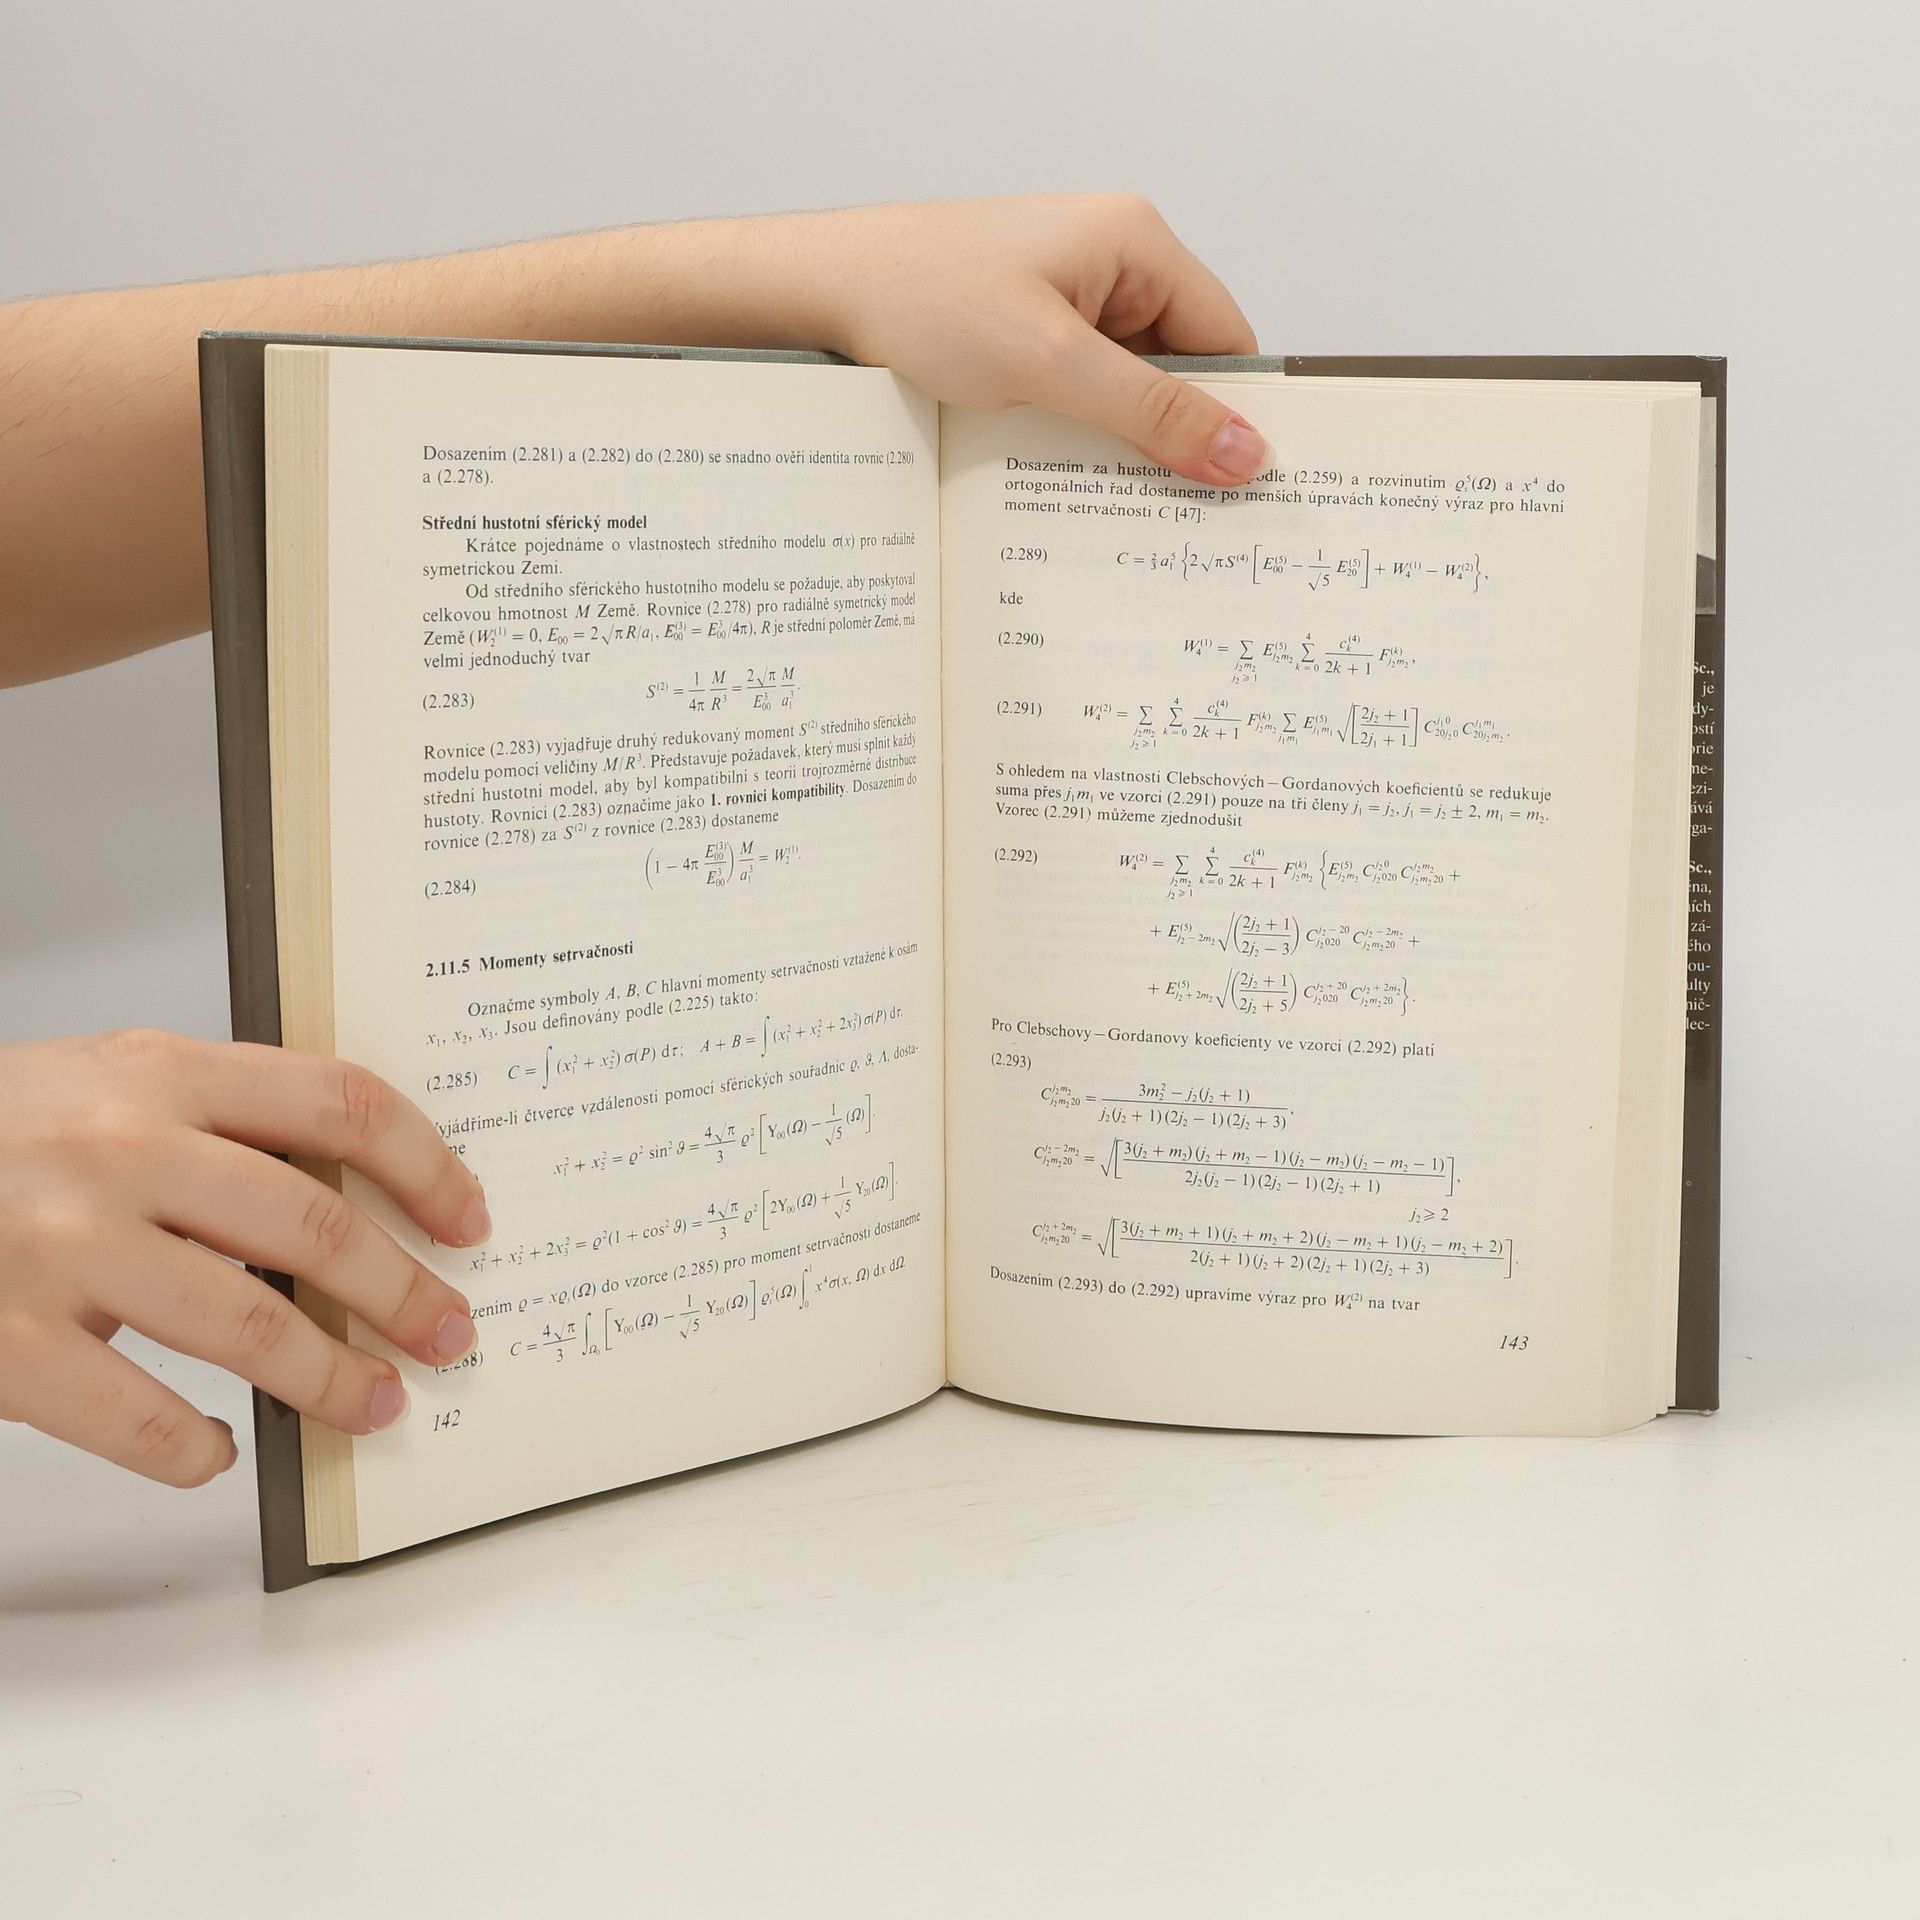 Dosazením (2.281) a (2.282) do (2.280) se snadno ověří identita rovnic (2.280)
a (2.278).
Střední hustotní sférický model
Krátce pojednáme o vlastnostech středního modelu σ(x) pro radiálně
symetrickou Zemi.
Od středního sférického hustotního modelu se požaduje, aby poskytoval
celkovou hmotnost M Země. Rovnice (2.278) pro radiálně symetrický model
Země (W₂⁽¹⁾ = 0, E₀₀ = 2√π R/a₁, E₀₀⁽³⁾ = E₀₀³/4π), R je střední poloměr Země, má
velmi jednoduchý tvar
(2.283) S⁽²⁾ = 1/4π M/R³ = 2√π/E₀₀³ M/a₁³.
Rovnice (2.283) vyjadřuje druhý redukovaný moment S⁽²⁾ středního sférického
modelu pomocí veličiny M/R³. Představuje požadavek, který musí splnit každý
střední hustotní model, aby byl kompatibilní s teorií trojrozměrné distribuce
hustoty. Rovnici (2.283) označíme jako 1. rovnici kompatibility. Dosazením do
rovnice (2.278) za S⁽²⁾ z rovnice (2.283) dostaneme
(2.284) (1 − 4π E₀₀⁽³⁾/E₀₀³) M/a₁³ = W₂⁽¹⁾.
2.11.5 Momenty setrvačnosti
Označme symboly A, B, C hlavní momenty setrvačnosti vztažené k osám
x₁, x₂, x₃. Jsou definovány podle (2.225) takto:
(2.285) C = ∫ (x₁² + x₂²) σ(P) dτ; A + B = ∫ (x₁² + x₂² + 2x₃²) σ(P) dτ.
yjádříme-li čtverce vzdáleností pomocí sférických souřadnic ϱ, ϑ, Λ, dosta-
ne
x₁² + x₂² = ϱ² sin² ϑ = 4√π/3 ϱ² [Y₀₀(Ω) − 1/√5 (Ω)].
x₁² + x₂² + 2x₃² = ϱ²(1 + cos² ϑ) = 4√π/3 ϱ² [2Y₀₀(Ω) + 1/√5 Y₂₀(Ω)].
zením ϱ = xϱₛ(Ω) do vzorce (2.285) pro moment setrvačnosti dostaneme
(2.288) C = 4√π/3 ∫Ω₀ [Y₀₀(Ω) − 1/√5 Y₂₀(Ω)] ϱₛ⁵(Ω) ∫₀¹ x⁴σ(x, Ω) dx dΩ.
142
Dosazením za hustotu podle (2.259) a rozvinutím ϱₛ⁵(Ω) a x⁴ do
ortogonálních řad dostaneme po menších úpravách konečný výraz pro hlavní
moment setrvačnosti C [47]:
(2.289) C = ⅔ a₁⁵ {2√π S⁽⁴⁾ [E₀₀⁽⁵⁾ − 1/√5 E₂₀⁽⁵⁾] + W₄⁽¹⁾ − W₄⁽²⁾},
kde
(2.290) W₄⁽¹⁾ = ∑_{j₂m₂, j₂⩾1} E_{j₂m₂}^{(5)} ∑_{k=0}^{4} c_k^{(4)}/(2k + 1) F_{j₂m₂}^{(k)},
(2.291) W₄⁽²⁾ = ∑_{j₂m₂, j₂⩾1} ∑_{k=0}^{4} c_k^{(4)}/(2k + 1) F_{j₂m₂}^{(k)} ∑_{j₁m₁} E_{j₁m₁}^{(5)} √[(2j₂ + 1)/(2j₁ + 1)] C_{20j₂0}^{j₁0} C_{20j₂m₂}^{j₁m₁}.
S ohledem na vlastnosti Clebschových – Gordanových koeficientů se redukuje
suma přes j₁m₁ ve vzorci (2.291) pouze na tři členy j₁ = j₂, j₁ = j₂ ± 2, m₁ = m₂.
Vzorec (2.291) můžeme zjednodušit
(2.292) W₄⁽²⁾ = ∑_{j₂m₂, j₂⩾1} ∑_{k=0}^{4} c_k^{(4)}/(2k + 1) F_{j₂m₂}^{(k)} {E_{j₂m₂}^{(5)} C_{j₂020}^{j₂0} C_{j₂m₂20}^{j₂m₂} +
+ E_{j₂−2m₂}^{(5)} √((2j₂ + 1)/(2j₂ − 3)) C_{j₂020}^{j₂−20} C_{j₂m₂20}^{j₂−2m₂} +
+ E_{j₂+2m₂}^{(5)} √((2j₂ + 1)/(2j₂ + 5)) C_{j₂020}^{j₂+20} C_{j₂m₂20}^{j₂+2m₂}}.
Pro Clebschovy – Gordanovy koeficienty ve vzorci (2.292) platí
(2.293)
C_{j₂m₂20}^{j₂m₂} = (3m₂² − j₂(j₂ + 1))/(j₂(j₂ + 1)(2j₂ − 1)(2j₂ + 3)),
C_{j₂m₂20}^{j₂−2m₂} = √[3(j₂ + m₂)(j₂ + m₂ − 1)(j₂ − m₂)(j₂ − m₂ − 1)/2j₂(j₂ − 1)(2j₂ − 1)(2j₂ + 1)],
j₂ ⩾ 2
C_{j₂m₂20}^{j₂+2m₂} = √[3(j₂ + m₂ + 1)(j₂ + m₂ + 2)(j₂ − m₂ + 1)(j₂ − m₂ + 2)/2(j₂ + 1)(j₂ + 2)(2j₂ + 1)(2j₂ + 3)].
Dosazením (2.293) do (2.292) upravíme výraz pro W₄⁽²⁾ na tvar
143
Sc.,
je
dy-
ostí
orie
me-
ezi-
ává
rga-
Sc.,
ena,
ních
zá-
ého
ou-
ulty
nič-
lec-